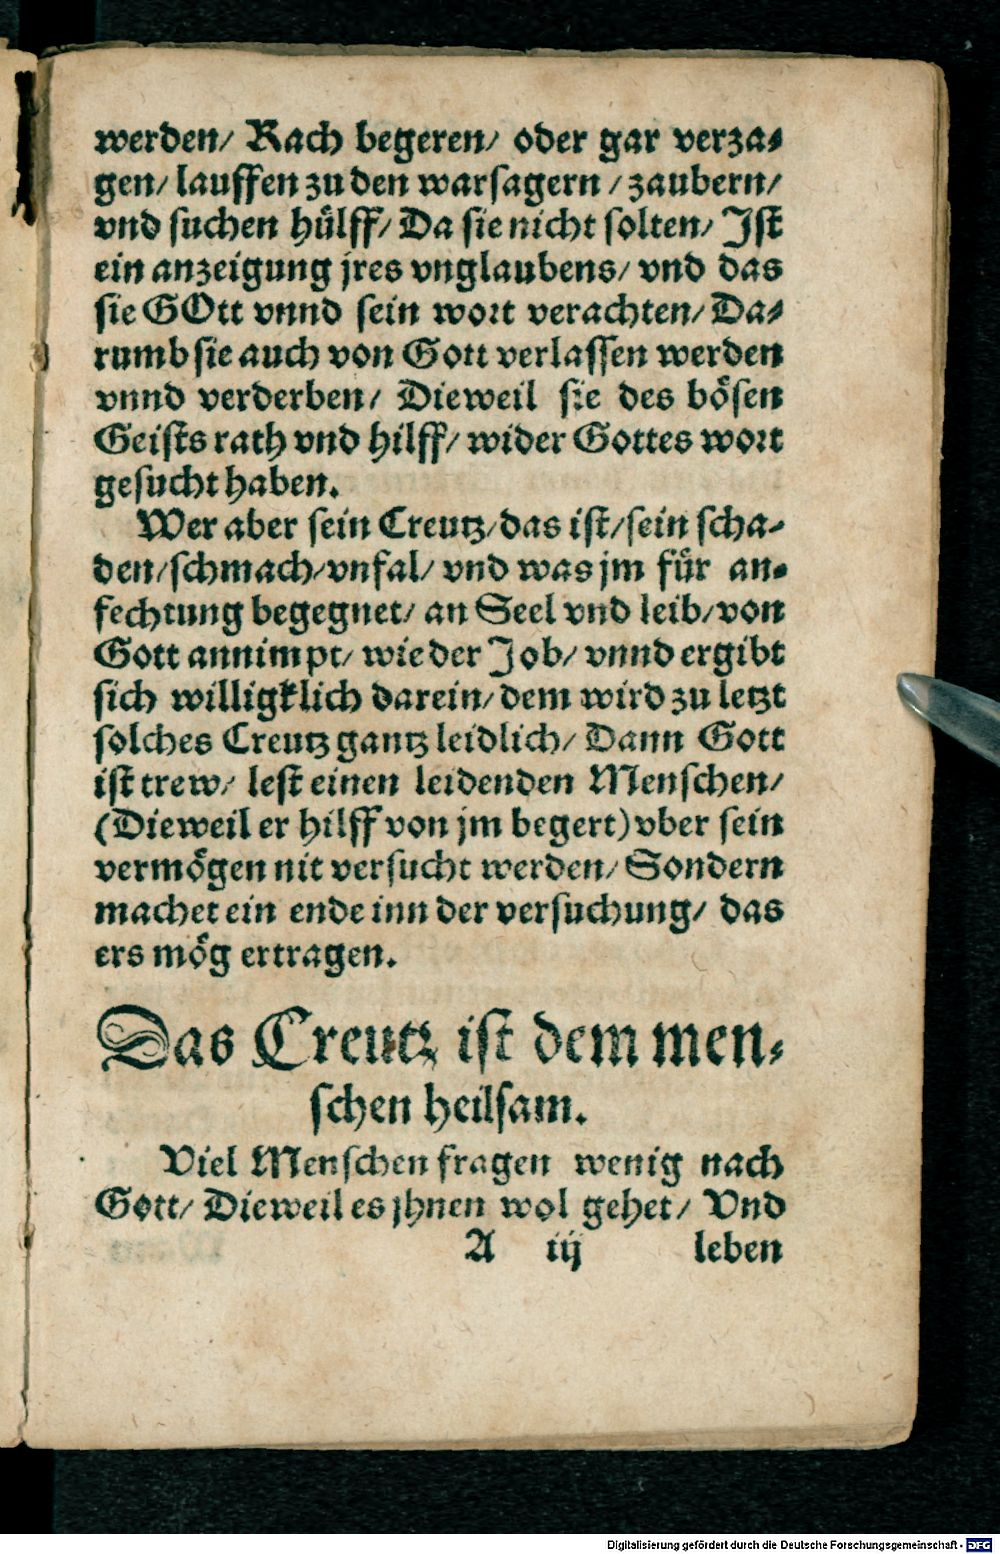 werden/ Rach begeren/ oder gar verza⸗
gen/ lauffen zu den warsagern / zaubern/
vnd suchen hülff/ Da sie nicht solten/ Ist
ein anzeigung jres vnglaubens/ vnd das
sie GOtt vnnd sein wort verachten/ Da⸗
rumb sie auch von Gott verlassen werden
vnnd verderben/ Dieweil sie des bösen
Geists rath vnd hilff/ wider Gottes wort
gesucht haben.
Wer aber sein Creutz/ das ist/ sein scha⸗
den/ schmach/ vnfal/ vnd was jm für an⸗
fechtung begegnet/ an Seel vnd leib/ von
Gott annimpt/ wie der Job/ vnnd ergibt
sich willigklich darein/ dem wird zu letzt
solches Creutz gantz leidlich/ Dann Gott
ist trew/ lest einen leidenden Menschen/
(Dieweil er hilff von jm begert) vber sein
vermögen nit versucht werden/ Sondern
machet ein ende inn der versuchung/ das
ers mög ertragen.
Das Creutz ist dem men⸗
schen heilsam.
Viel Menschen fragen wenig nach
Gott/ Dieweil es jhnen wol gehet/ Vnd
A iij leben
Digitalisierung gefördert durch die Deutsche Forschungsgemeinschaft - DFG